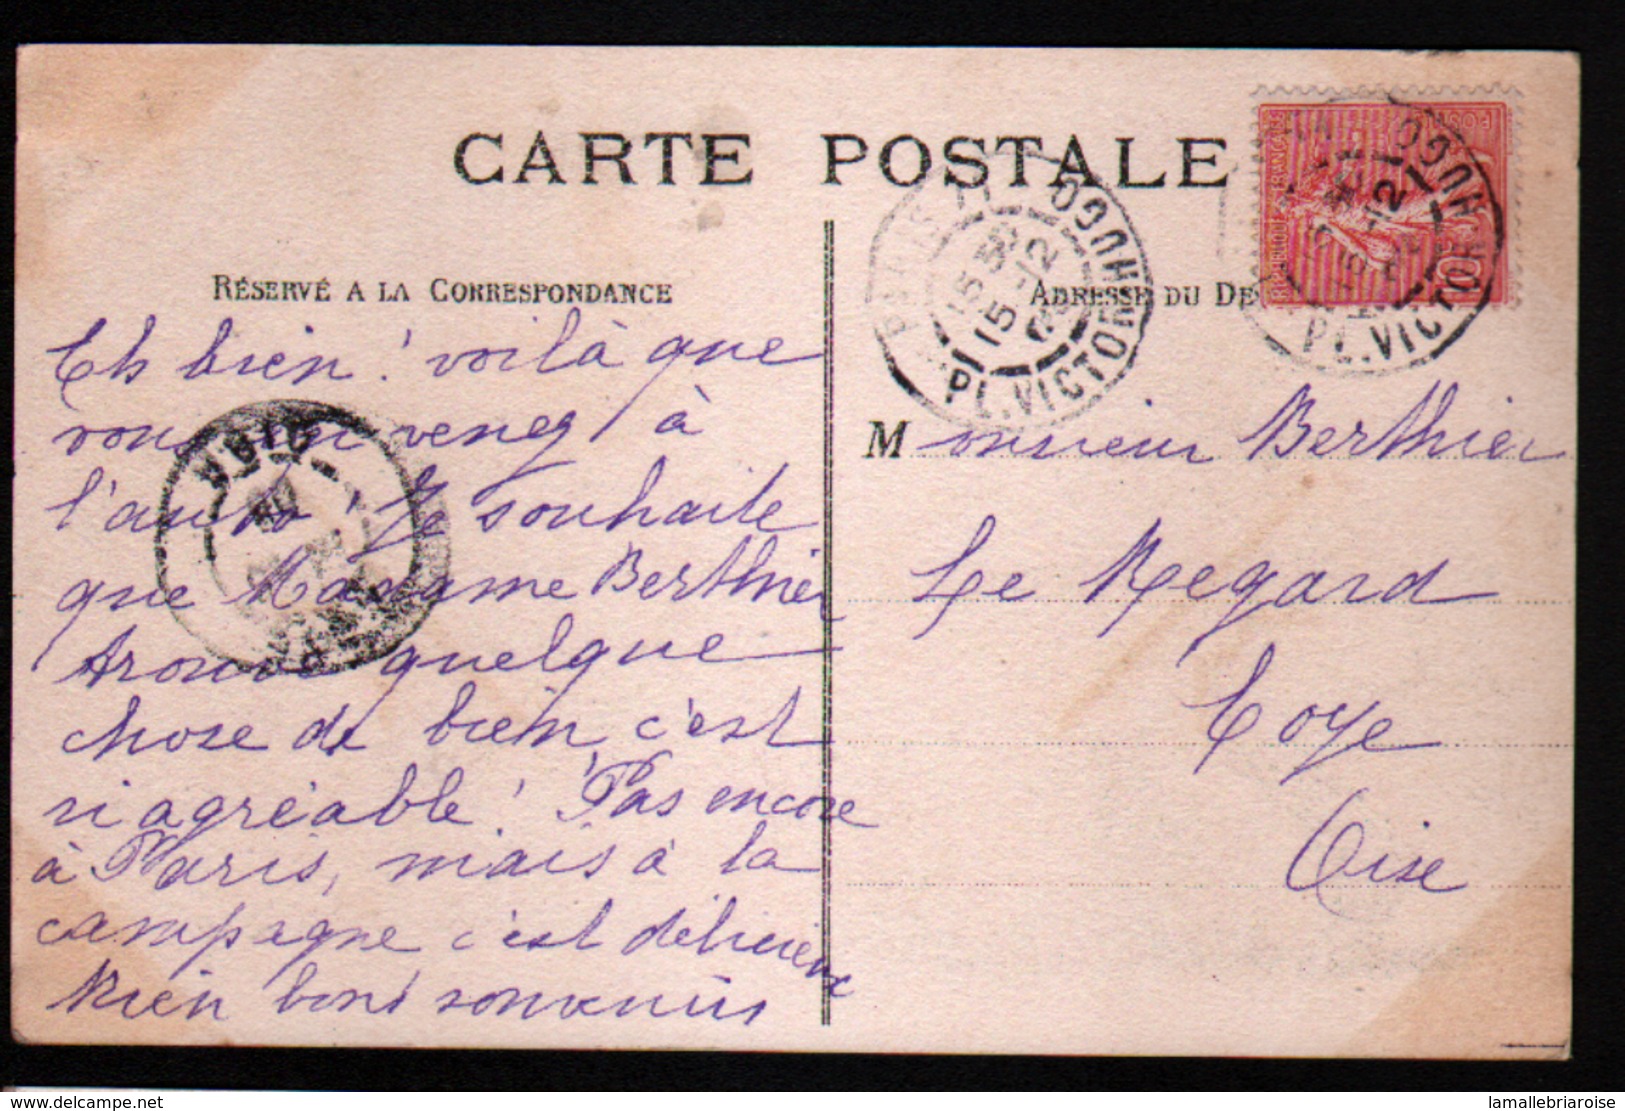 CARTE POSTALE
RÉSERVÉ A LA CORRESPONDANCE
ADRESSE DU DE
Eh bien! voilà que
vous en venez à
l'auto! Je souhaite
que Madame Berthier
trouve quelque
chose de bien, c'est
si agréable! Pas encore
à Paris, mais à la
campagne c'est délicieux
Bien bons souvenirs
Monsieur Berthier
Le Regard
Coye
Oise
PARIS
PL. VICTOR HUGO
15 -12
HUGO
PL. VICTOR
-12
REPUBLIQUE FRANÇAISE
POSTES
10
delcampe.net
lamallebriaroise